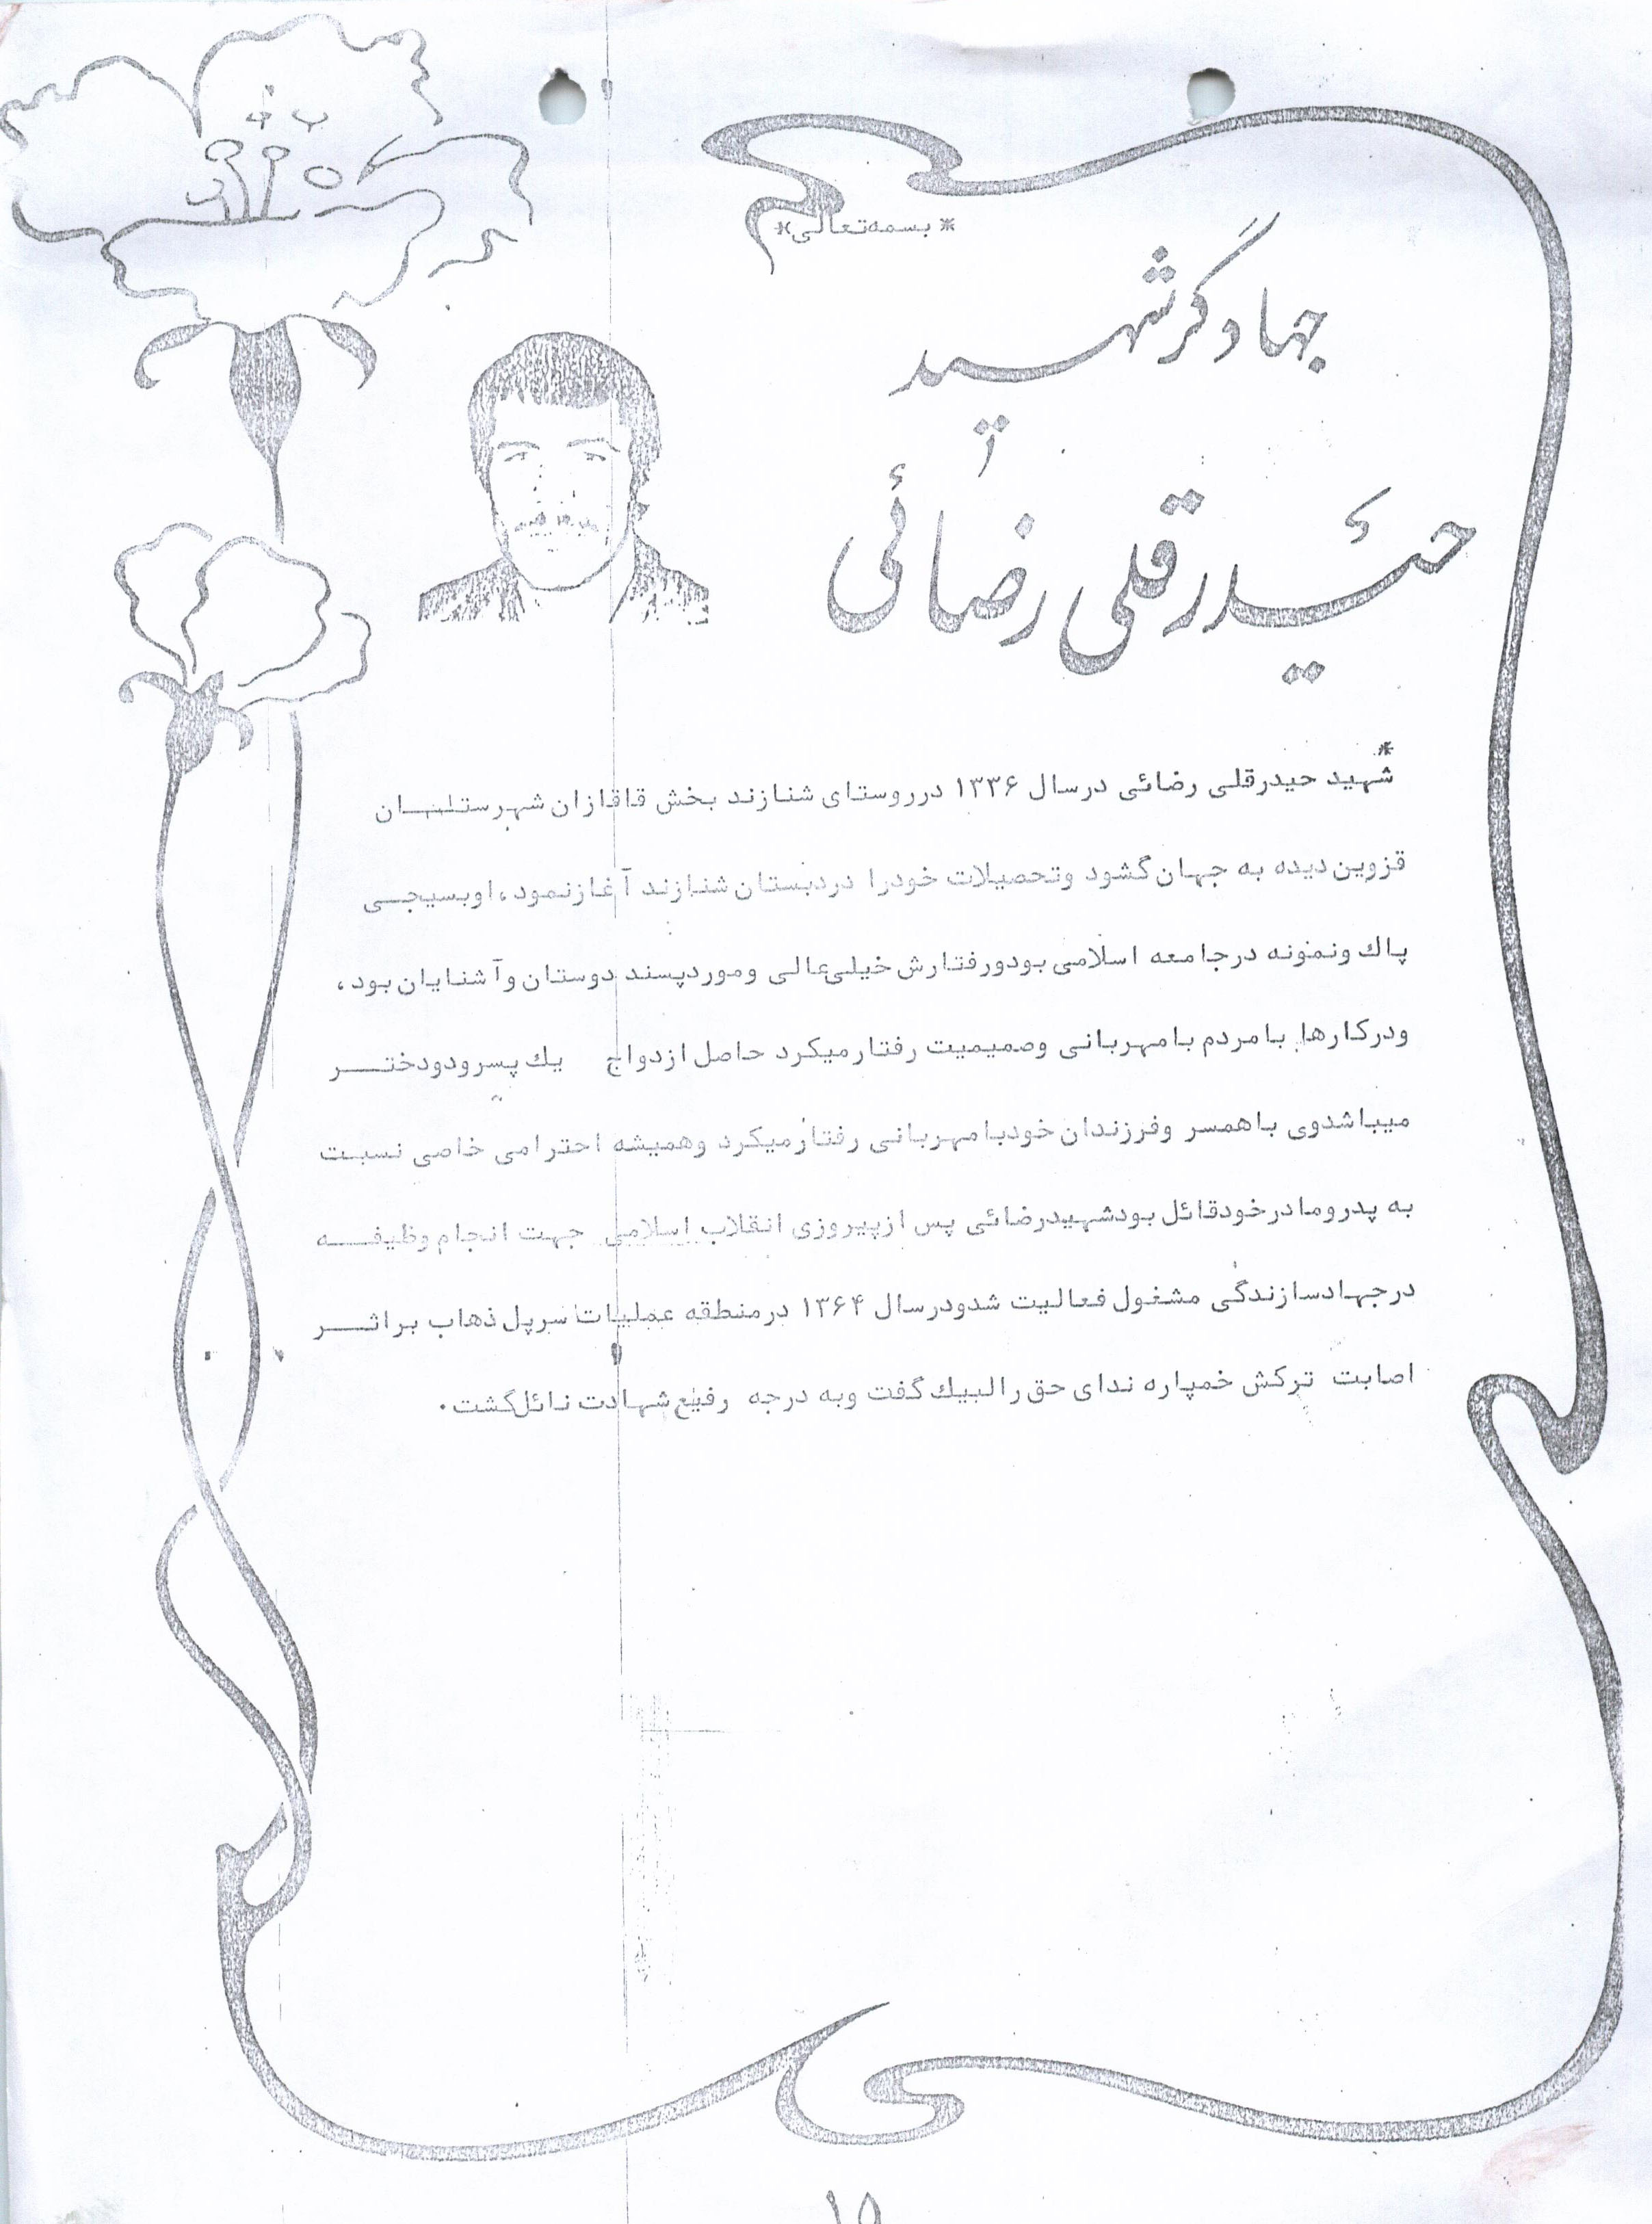 * بسمه تعالی *
جهادگر شهید
حیدرقلی رضائی
*
شهید حیدرقلی رضائی درسال ۱۳۳۶ درروستای شنازند بخش قاقازان شهرستان
قزوین دیده به جهان گشود وتحصیلات خودرا دردبستان شنازند آغازنمود، اوبسیجی
پاك ونمونه درجامعه اسلامی بودورفتارش خیلی عالی وموردپسند دوستان وآشنایان بود،
ودرکارها بامردم بامهربانی وصمیمیت رفتارمیکرد حاصل ازدواج یك پسرودودختر
میباشدوی باهمسر وفرزندان خودبامهربانی رفتارمیکرد وهمیشه احترامی خاصی نسبت
به پدرومادرخودقائل بودشهیدرضائی پس ازپیروزی انقلاب اسلامی جهت انجام وظیفه
درجهادسازندگی مشغول فعالیت شدودرسال ۱۳۶۴ درمنطقه عملیات سرپل ذهاب براثر
اصابت ترکش خمپاره ندای حق رالبیك گفت وبه درجه رفیع شهادت نائل گشت.
۱۵